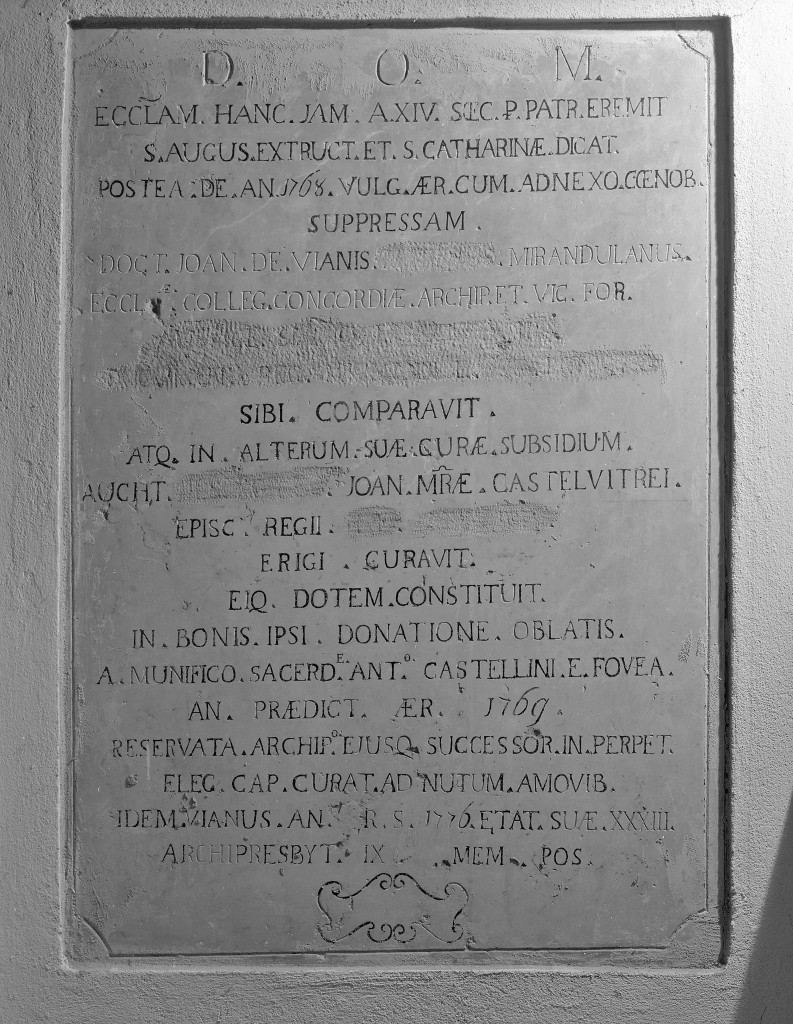 D. O. M.
ECCLAM. HANC. JAM. A. XIV. SÆC. P. PATR. EREMIT
S. AUGUS. EXTRUCT. ET. S. CATHARINÆ. DICAT.
POSTEA. DE. AN. 1768. VULG. ÆR. CUM. ADNEXO. CŒNOB.
SUPPRESSAM.
DOCT. JOAN. DE. VIANIS. MIRANDULANUS.
COLLEG. CONCORDIÆ. ARCHIP. ET. VIC. FOR.
SIBI. COMPARAVIT.
ATQ. IN. ALTERUM. SUÆ. CURÆ. SUBSIDIUM.
AUCHT. JOAN. MRÆ. CASTELVITREI.
EPISC. REGII.
ERIGI. CURAVIT.
EIQ. DOTEM. CONSTITUIT.
IN. BONIS. IPSI. DONATIONE. OBLATIS.
A. MUNIFICO. SACERD.E ANT.O CASTELLINI. E. FOVEA.
AN. PRÆDICT. ÆR. 1769.
RESERVATA. ARCHIP.O EJUSQ. SUCCESSOR. IN. PERPET.
ELEC. CAP. CURAT. AD NUTUM. AMOVIB.
IDEM. VIANUS. AN. R. S. 1776. ETAT. SUÆ. XXXIII.
ARCHIPRESBYT. IX MEM. POS.